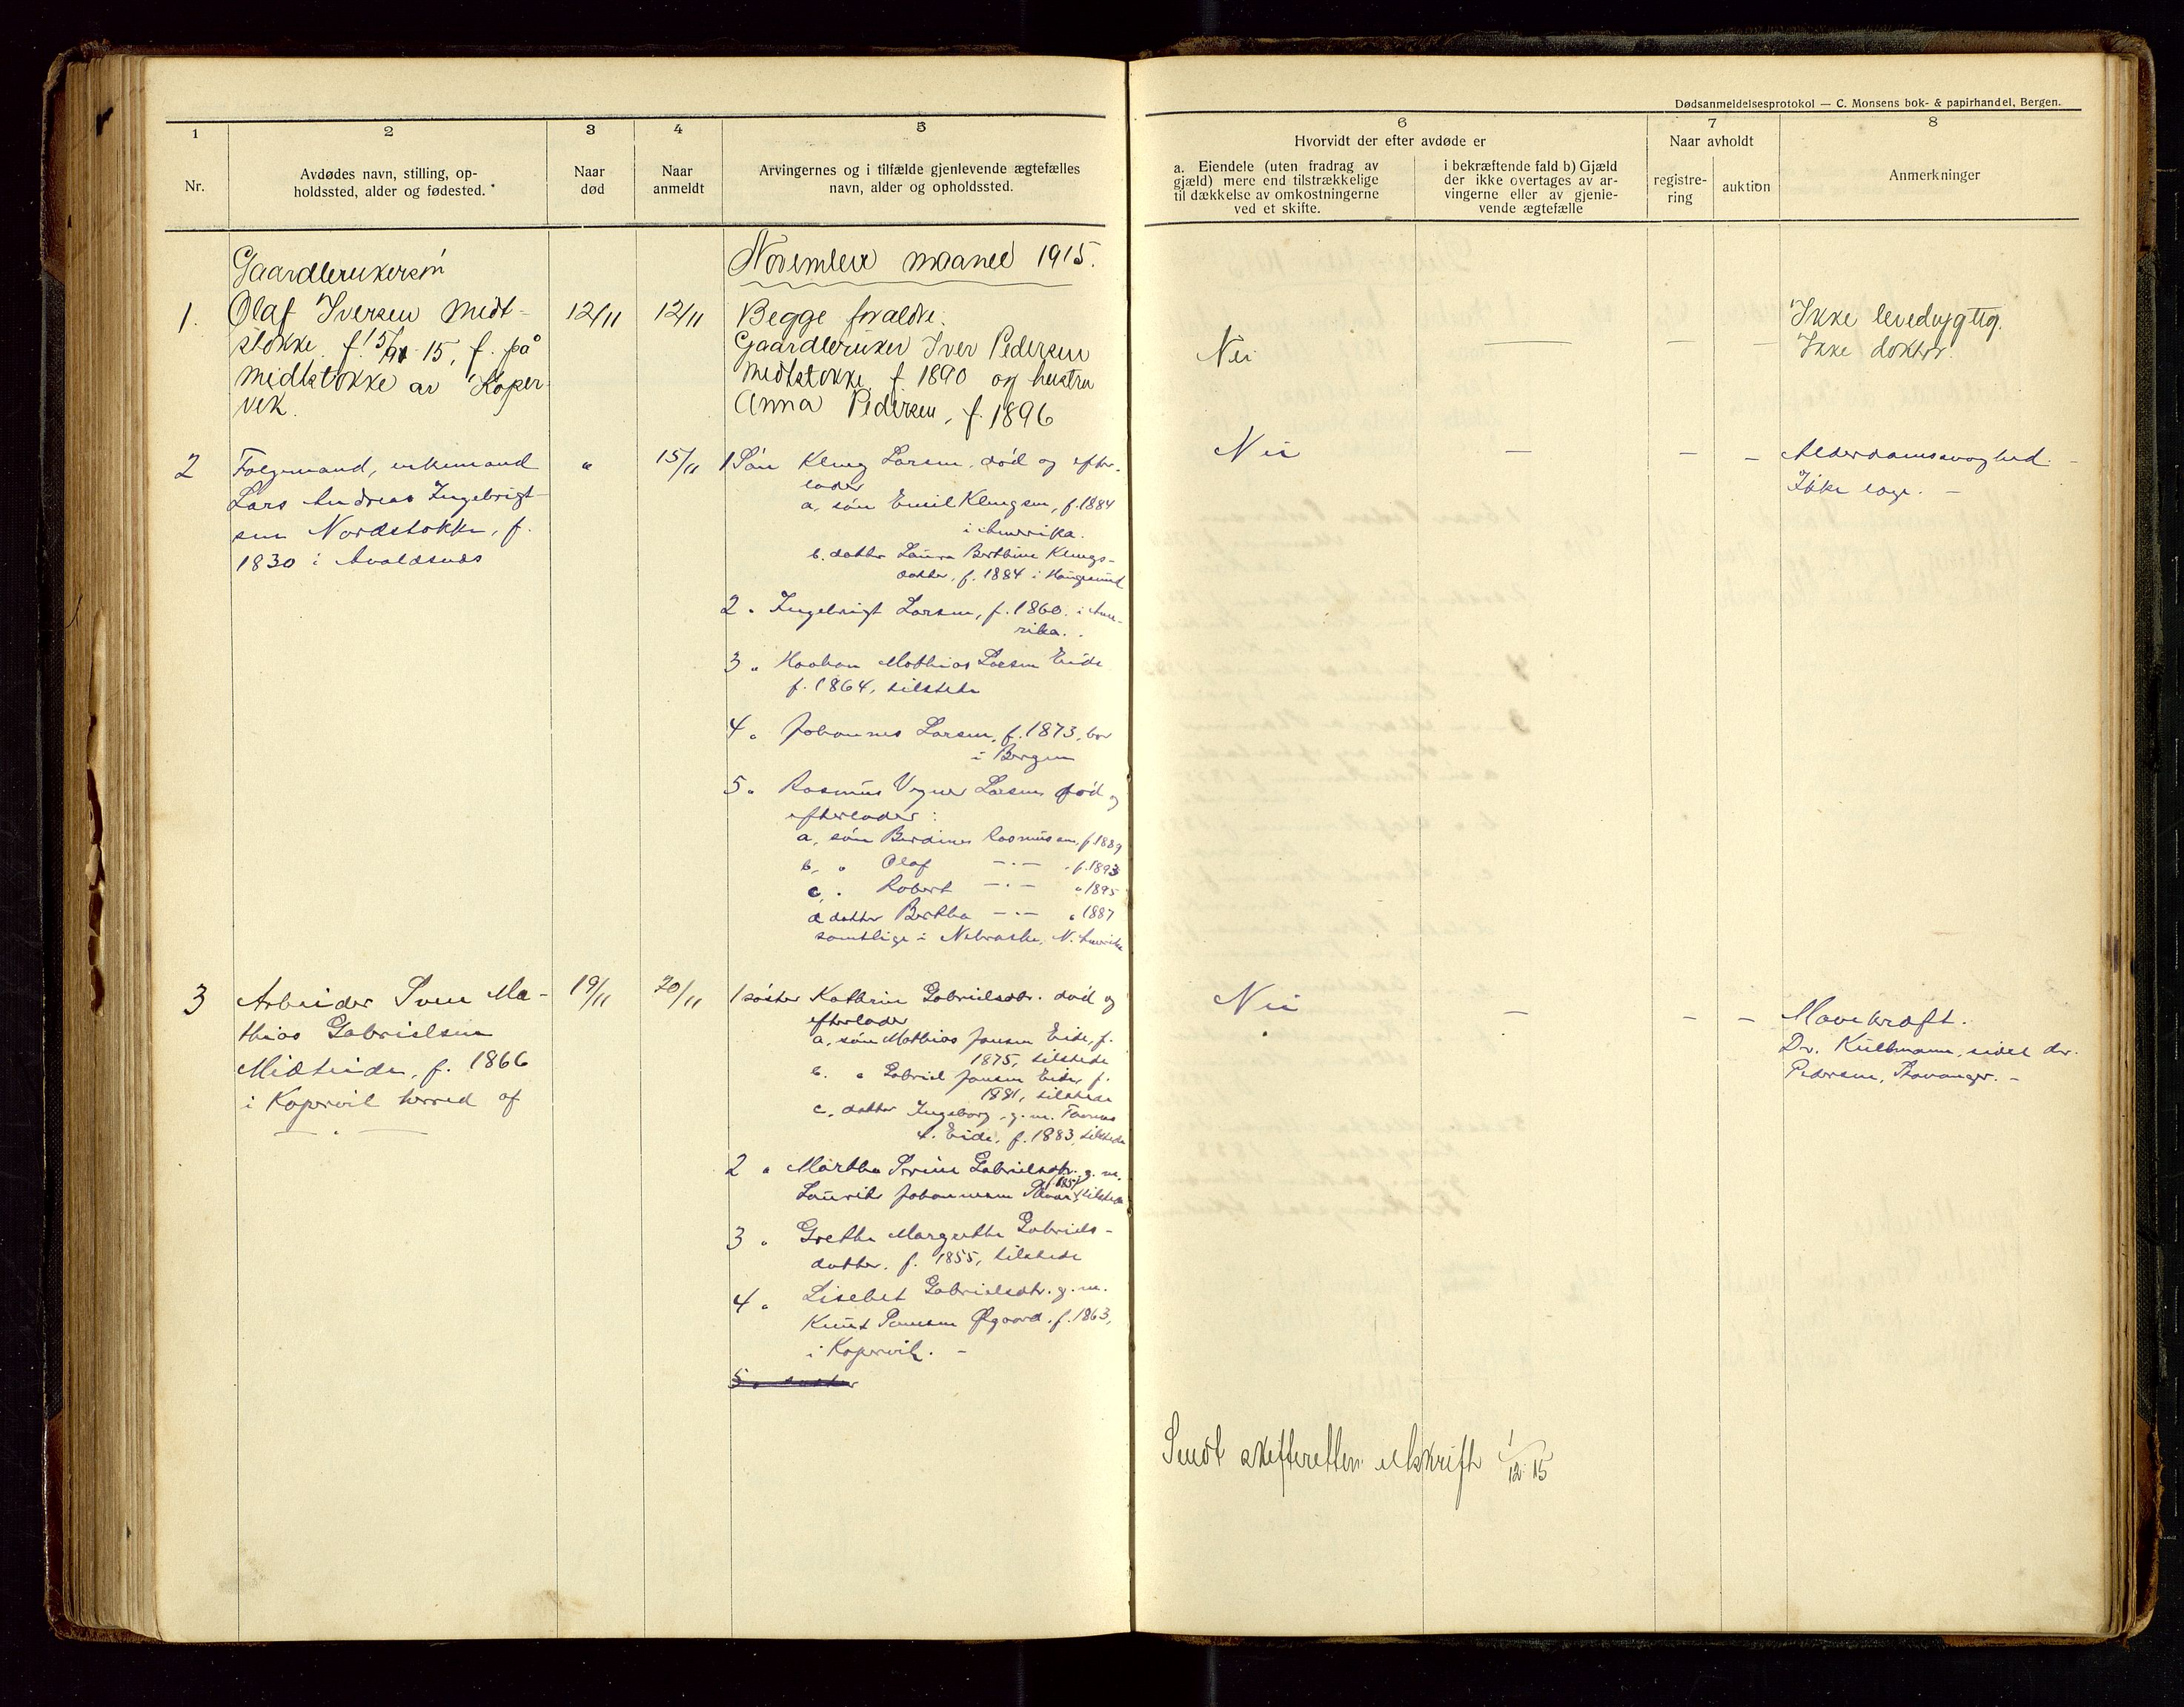 Dødsanmeldelsesprotokol — C. Monsens bok- & papirhandel, Bergen.
1
2
3
4
5
6
7
8
Nr.
Avdødes navn, stilling, op-
holdssted, alder og fødested.
Naar
død
Naar
anmeldt
Arvingernes og i tilfælde gjenlevende ægtefælles
navn, alder og opholdssted.
Hvorvidt der efter avdøde er
a. Eiendele (uten fradrag av
gjæld) mere end tilstrækkelige
til dækkelse av omkostningerne
ved et skifte.
i bekræftende fald b) Gjæld
der ikke overtages av ar-
vingerne eller av gjenle-
vende ægtefælle
Naar avholdt
registre-
ring
auktion
Anmerkninger
November maaned 1915.
Gaardbrukersøn
1. Olaf Iversen Midt-
stokke. f. 15/ 15, f. på
Midtstokke av Koper-
vik.
12/11
12/11
Begge forældre.
Gaardbruker Iver Pedersen
Midtstokke f. 1890 og hustru
Anna Pedersen, f. 1896
Nei — — —
Ikke levedygtig.
Ikke doktor.
2 Folgemand, enkemand
Lars Andreas Ingebrigt-
sen Nordstokke, f.
1830 i Avaldsnes
"
15/11
1 Søn Klung Larsen, død og efter-
lader
a, søn Emil Klungsen, f. 1884
i Amerika.
b. datter Laura Berthine Klungs-
datter, f. 1884 i Haugesund
2 " Ingebrigt Larsen, f. 1860. i Ame-
rika.
3 " Haakon Mathias Larsen Eide
f. 1864, tilstede
4 " Johannes Larsen, f. 1873, bor
i Bergen
5 " Rasmus Larsen død og
efterlader:
a, søn Berdines Rasmussen, f. 1889
b, " Olaf —"— f. 1893
c, " Robert —"— " 1895
d datter Bertha —"— " 1887
samtlige i Nebraska, N. Amerika
Nei — — —
Alderdomssvaghed. -
Ikke læge. -
3 Arbeider Sven Ma-
thias Gabrielsen
Midteide, f. 1866
i Kopervik herred af
— " —
19/11
20/11
1 søster Kathrine Gabrielsdtr. død og
efterlader
a, søn Mathias Jonsen Eide, f.
1875, tilstede
b. " Gabriel Jonsen Eide, f.
1881, tilstede
c, datter Ingeborg, g. m. Tormes
Eide, f. 1883, tilstede
2 " Martha Serine Gabrielsdtr. g. m.
Laurits Johannesen tilstede
3 " Grethe Margrethe Gabriels-
datter. f. 1855, tilstede
4 " Lisebet Gabrielsdtr. g. m.
Knut Øgaard. f. 1863,
i Kopervik. -
5 " datter
Nei — — —
Mavekræft.
Dr. Kullmann, sidst dr.
Pedersen, Stavanger. -
Sendt skifteretten utskrift 1/12 15